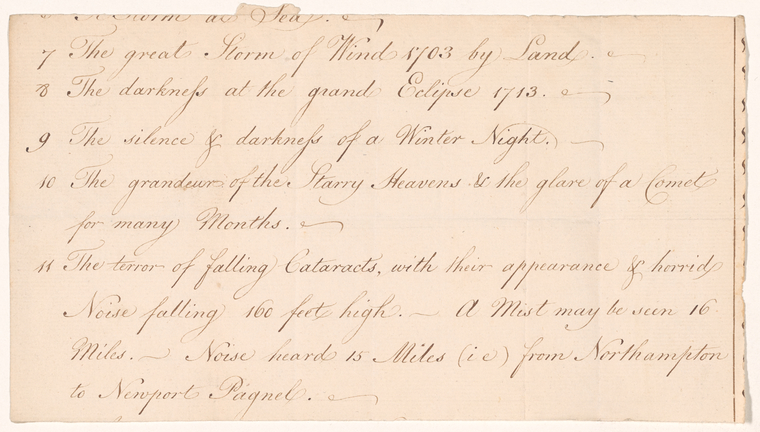 A Storm at Sea.
7 The great Storm of Wind 1703 by Land.
8 The darkness at the grand Eclipse 1713.
9 The silence & darkness of a Winter Night.
10 The grandeur of the Starry Heavens & the glare of a Comet
for many Months.
11 The terror of falling Cataracts, with their appearance & horrid
Noise falling 160 feet high. — A Mist may be seen 16
Miles. — Noise heard 15 Miles (i e) from Northampton
to Newport Pagnel.